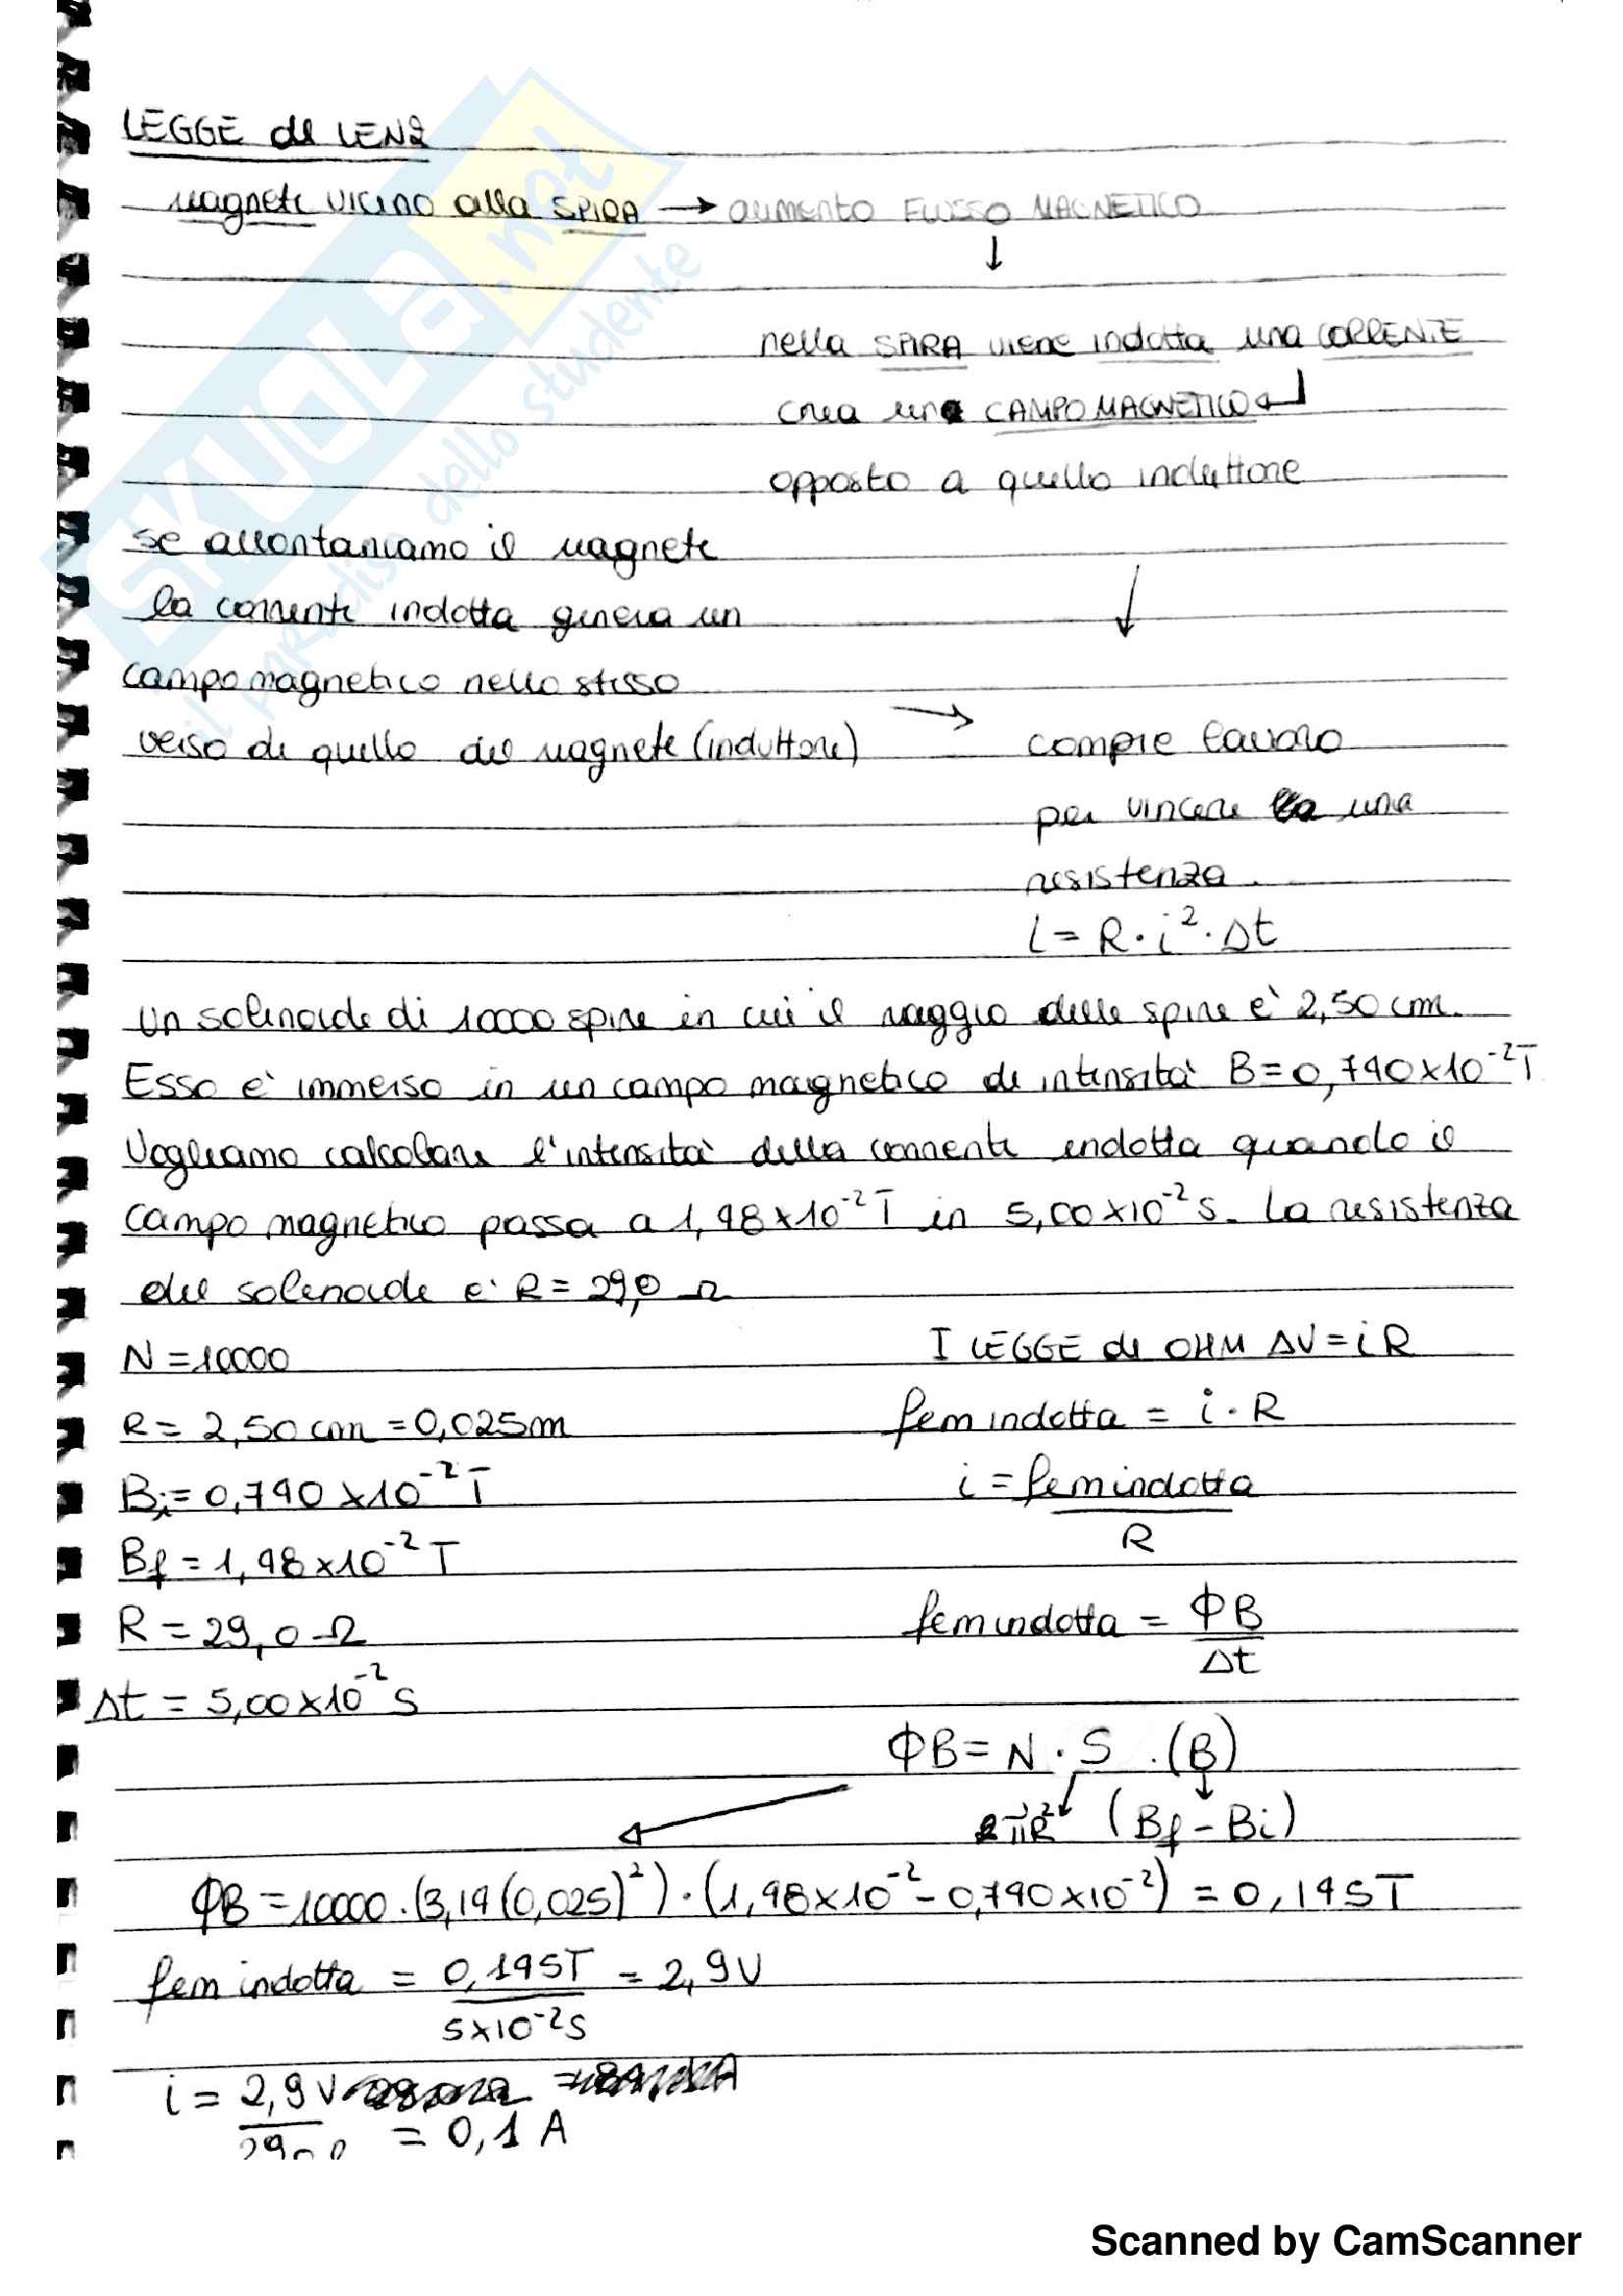 LEGGE di LENZ
magnete vicino alla SPIRA → aumento FLUSSO MAGNETICO
↓
nella SPIRA viene indotta una CORRENTE
crea un CAMPO MAGNETICO ↵
opposto a quello induttore
se allontaniamo il magnete
la corrente indotta genera un
↓
campo magnetico nello stesso
verso di quello del magnete (induttore) → compie lavoro
per vincere una
resistenza.
L = R·i²·Δt
Un solenoide di 10000 spire in cui il raggio delle spire è 2,50 cm.
Esso è immerso in un campo magnetico di intensità B=0,790x10⁻²T
Vogliamo calcolare l'intensità della corrente indotta quando il
campo magnetico passa a 1,98x10⁻²T in 5,00x10⁻²s. La resistenza
del solenoide è R=29,0 Ω
N=10000 I LEGGE di OHM ΔV=iR
R= 2,50 cm = 0,025m fem indotta = i·R
Bi=0,790 x10⁻²T i = fem indotta / R
Bf = 1,98x10⁻² T
R = 29,0 Ω fem indotta = ΦB / Δt
Δt = 5,00x10⁻² s
ΦB = N · S · (B)
πR² (Bf - Bi)
ΦB = 10000·(3,14(0,025)²)·(1,98x10⁻² - 0,790x10⁻²) = 0,145T
fem indotta = 0,145T / 5x10⁻²s = 2,9V
i = 2,9V / 29,0 Ω = 0,1 A
SKUOLA.net
il paradiso dello studente
Scanned by CamScanner